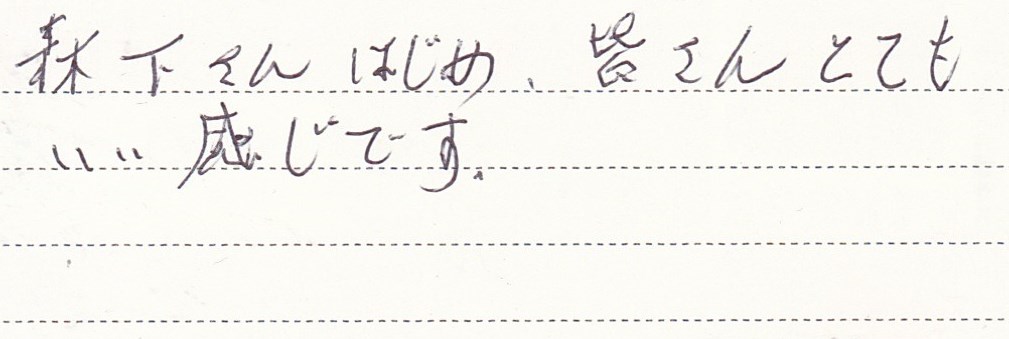 森下さんはじめ、皆さんとても
いい感じです。